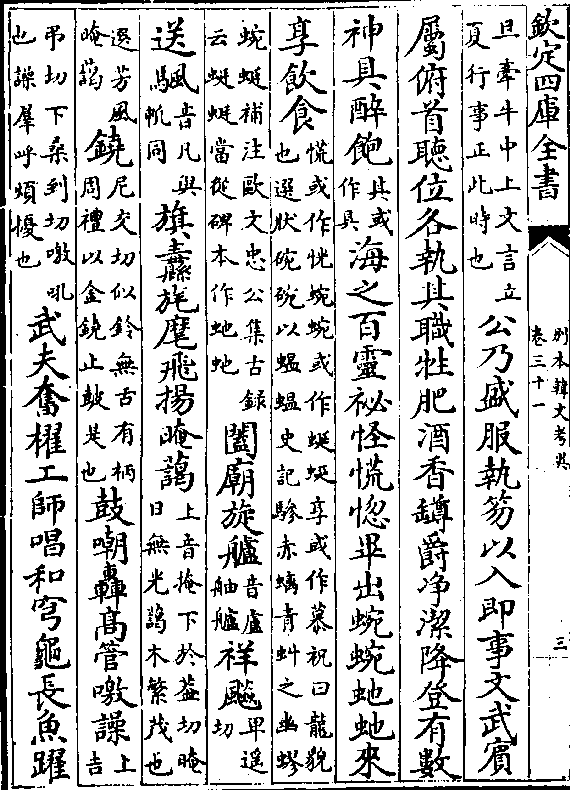 欽定四庫全書
別本韓文考異
卷三十一
三
旦牽牛中上文言立
夏行事正此時也
公乃盛服執笏以入即事文武賓
屬俯首聽位各執其職牲肥酒香鐏爵净潔降登有數
神具醉飽
具或
作具
海之百靈祕怪慌惚畢出蜿蜿虵虵來
享飲食
慌或作恍蜿蜿或作蜒蜒享或作慕祝曰龍貌
也選狀碗碗以蝹蝹史記驂赤螭青虯之幽蟉
蜿蜓補注歐文忠公集古録
云蜓蜓當從碑本作虵虵
闔廟旋艫
音盧
舳艫
祥飈
卑遥
切
送颿
音凡與
帆同
旗纛旄麾飛揚晻藹
上音掩下於蓋切晻
日無光藹木繁茂也
選芳風
晻藹
鐃
尼交切似鈴無舌有柄
周禮以金鐃止鼓是也
鼓嘲轟高管噭譟
上
吉
弔切下桑到切噭吼
也譟羣呼煩擾也
武夫奮櫂工師唱和穹龜長魚躍